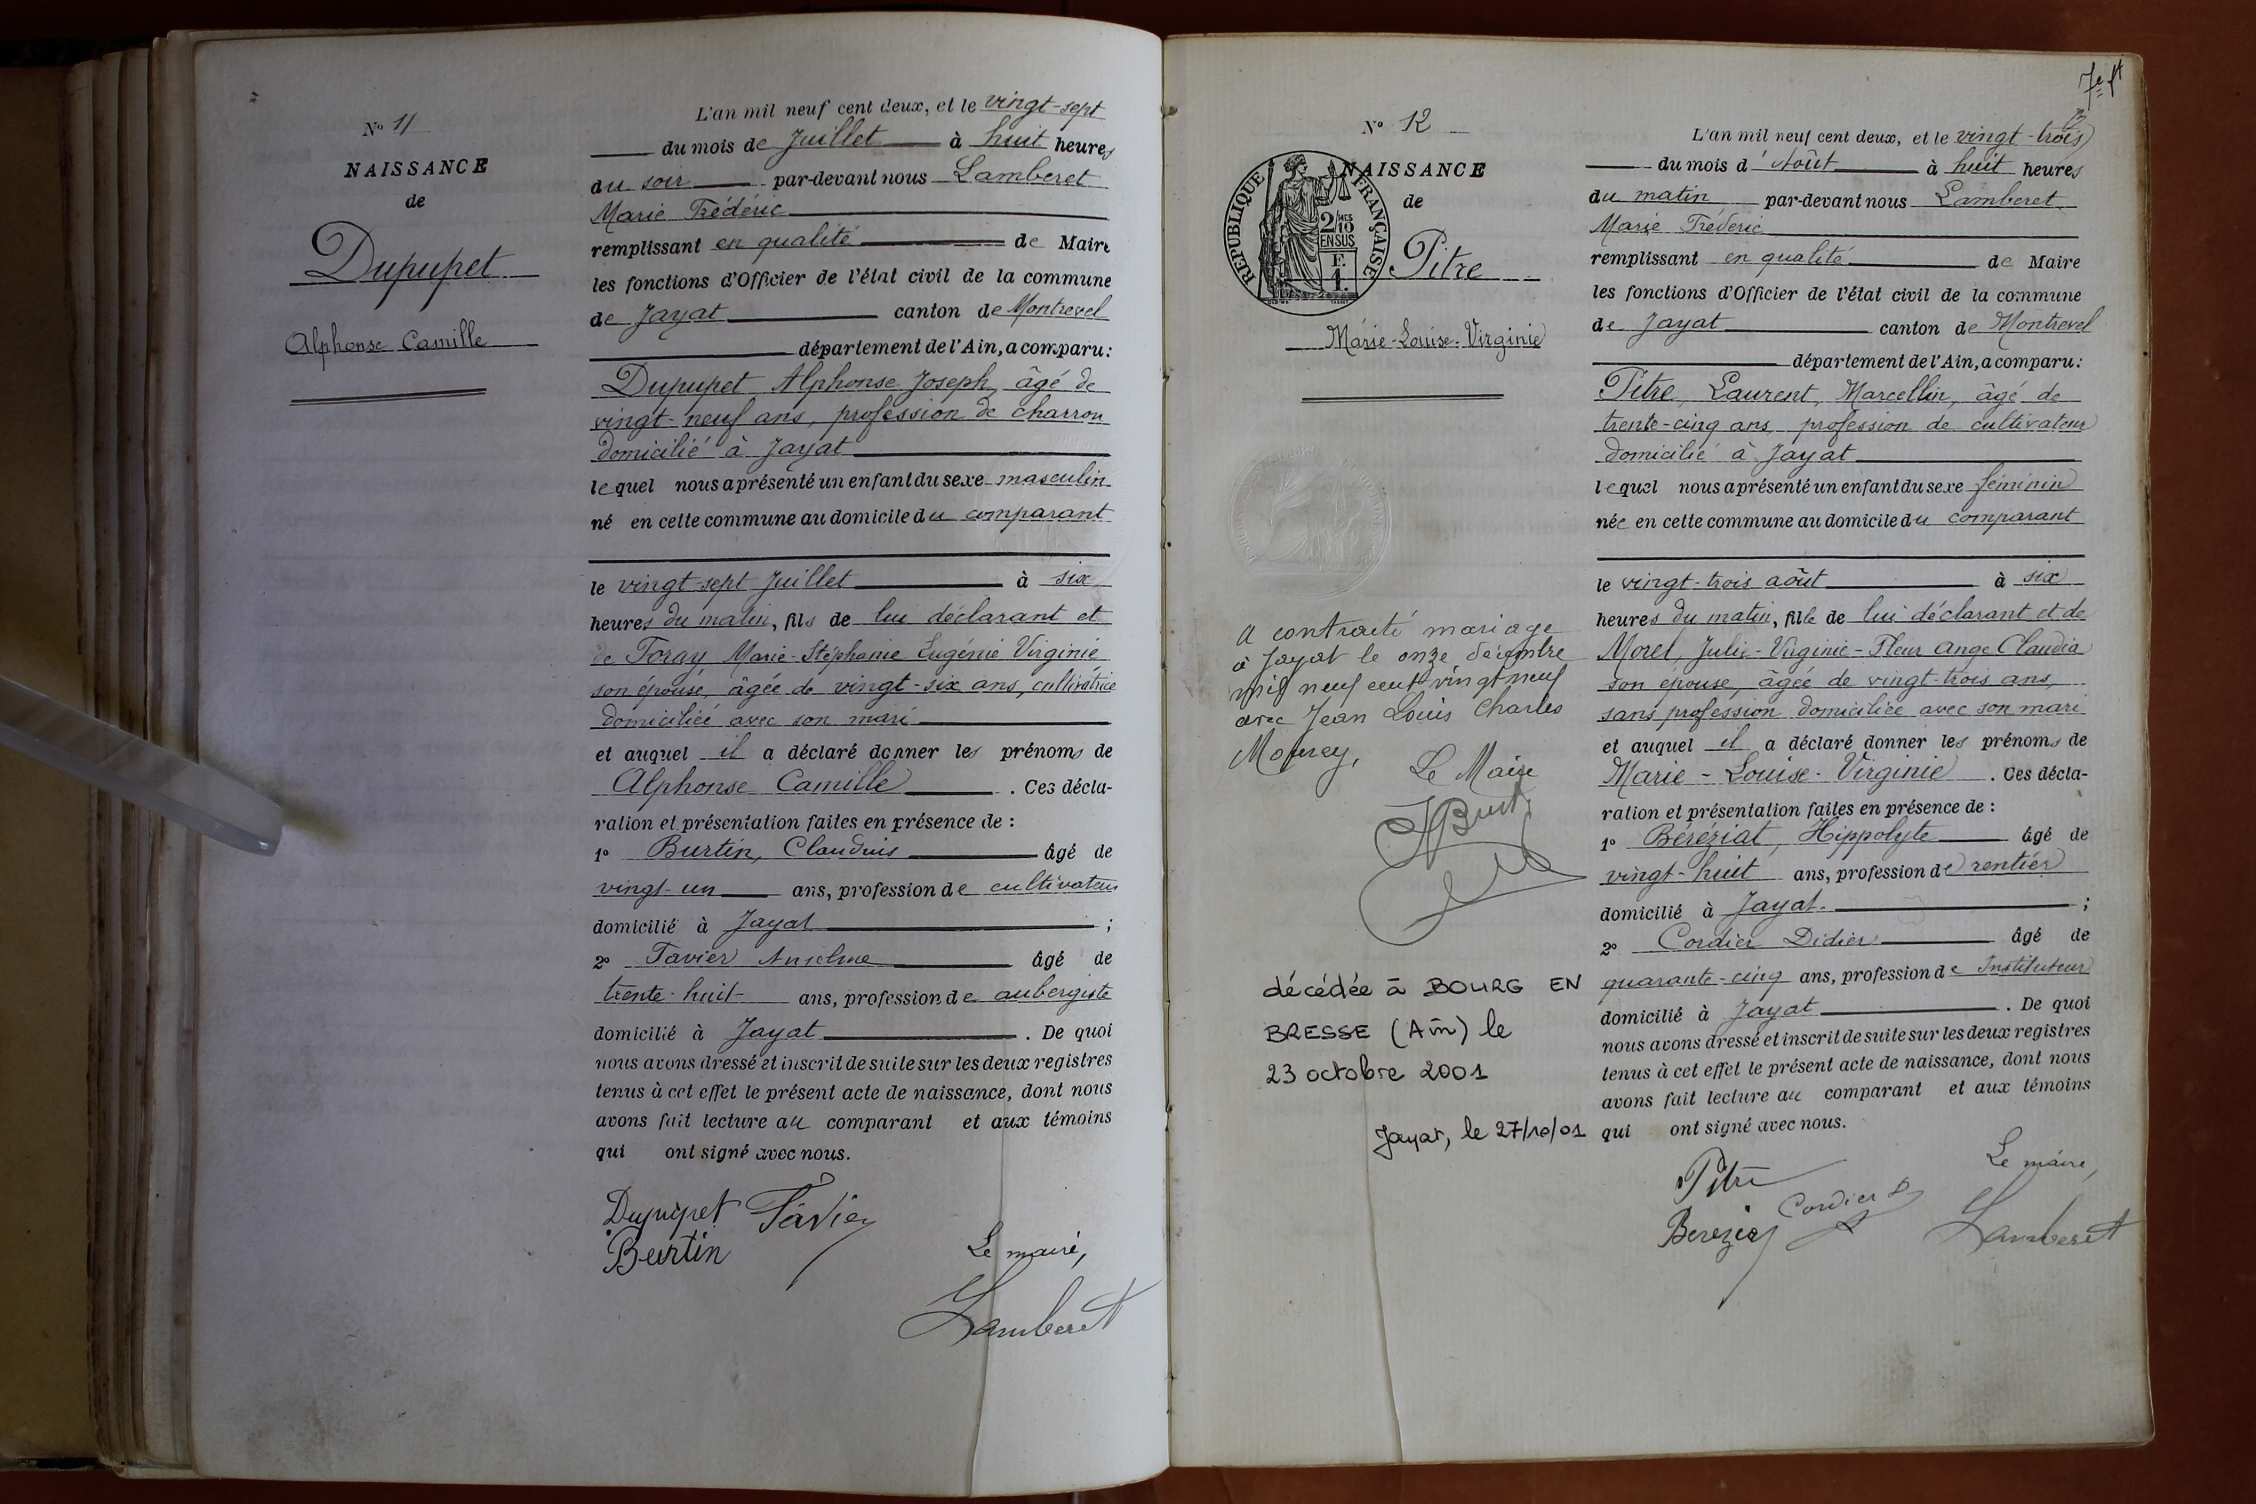 Nº 11
NAISSANCE
de
Dupupet
Alphonse Camille
L'an mil neuf cent deux, et le vingt-sept
du mois de Juillet à huit heures
du soir par-devant nous Lamberet
Marie Frédéric
remplissant en qualité de Maire
les fonctions d'Officier de l'état civil de la commune
de Jayat canton de Montrevel
département de l'Ain, a comparu :
Dupupet Alphonse Joseph, âgé de
vingt-neuf ans, profession de charron
domicilié à Jayat
lequel nous a présenté un enfant du sexe masculin
né en cette commune au domicile du comparant
le vingt-sept Juillet à six
heures du matin, fils de lui déclarant et
de Foray Marie-Stéphanie Eugénie Virginie
son épouse, âgée de vingt-six ans, cultivatrice
domiciliée avec son mari
et auquel il a déclaré donner les prénoms de
Alphonse Camille . Ces décla-
ration et présentation faites en présence de :
1º Burtin, Claudius âgé de
vingt-un ans, profession de cultivateur
domicilié à Jayat ;
2º Favier Anselme âgé de
trente-huit ans, profession de aubergiste
domicilié à Jayat . De quoi
nous avons dressé et inscrit de suite sur les deux registres
tenus à cet effet le présent acte de naissance, dont nous
avons fait lecture au comparant et aux témoins
qui ont signé avec nous.
Dupupet Favier
Burtin
Le maire,
Lamberet
7e ft
Nº 12
NAISSANCE
de
RÉPUBLIQUE FRANÇAISE
2/10 MES
EN SUS
F.
1.
Pitre
Marie-Louise-Virginie
A contracté mariage
à Jayat le onze décembre
mil neuf cent vingt neuf
avec Jean Louis Charles
Morey,
Le Maire
décédée à BOURG EN
BRESSE (Ain) le
23 octobre 2001
Jayat, le 27/10/01
L'an mil neuf cent deux, et le vingt-trois
du mois d'Août à huit heures
du matin par-devant nous Lamberet
Marie Fréderic
remplissant en qualité de Maire
les fonctions d'Officier de l'état civil de la commune
de Jayat canton de Montrevel
département de l'Ain, a comparu :
Pitre, Laurent, Marcellin, âgé de
trente-cinq ans, profession de cultivateur
domicilié à Jayat
lequel nous a présenté un enfant du sexe féminin
née en cette commune au domicile du comparant
le vingt-trois août à six
heures du matin, fille de lui déclarant et de
Morel, Julie-Virginie-Fleur Ange Claudia
son épouse, âgée de vingt-trois ans,
sans profession domiciliée avec son mari
et auquel il a déclaré donner les prénoms de
Marie-Louise-Virginie . Ces décla-
ration et présentation faites en présence de :
1º Béréziat, Hippolyte âgé de
vingt-huit ans, profession de rentier
domicilié à Jayat. ;
2º Cordier Didier âgé de
quarante-cinq ans, profession de Instituteur
domicilié à Jayat . De quoi
nous avons dressé et inscrit de suite sur les deux registres
tenus à cet effet le présent acte de naissance, dont nous
avons fait lecture au comparant et aux témoins
qui ont signé avec nous.
Pitre
Cordier D
Bereziat
Le maire,
Lamberet